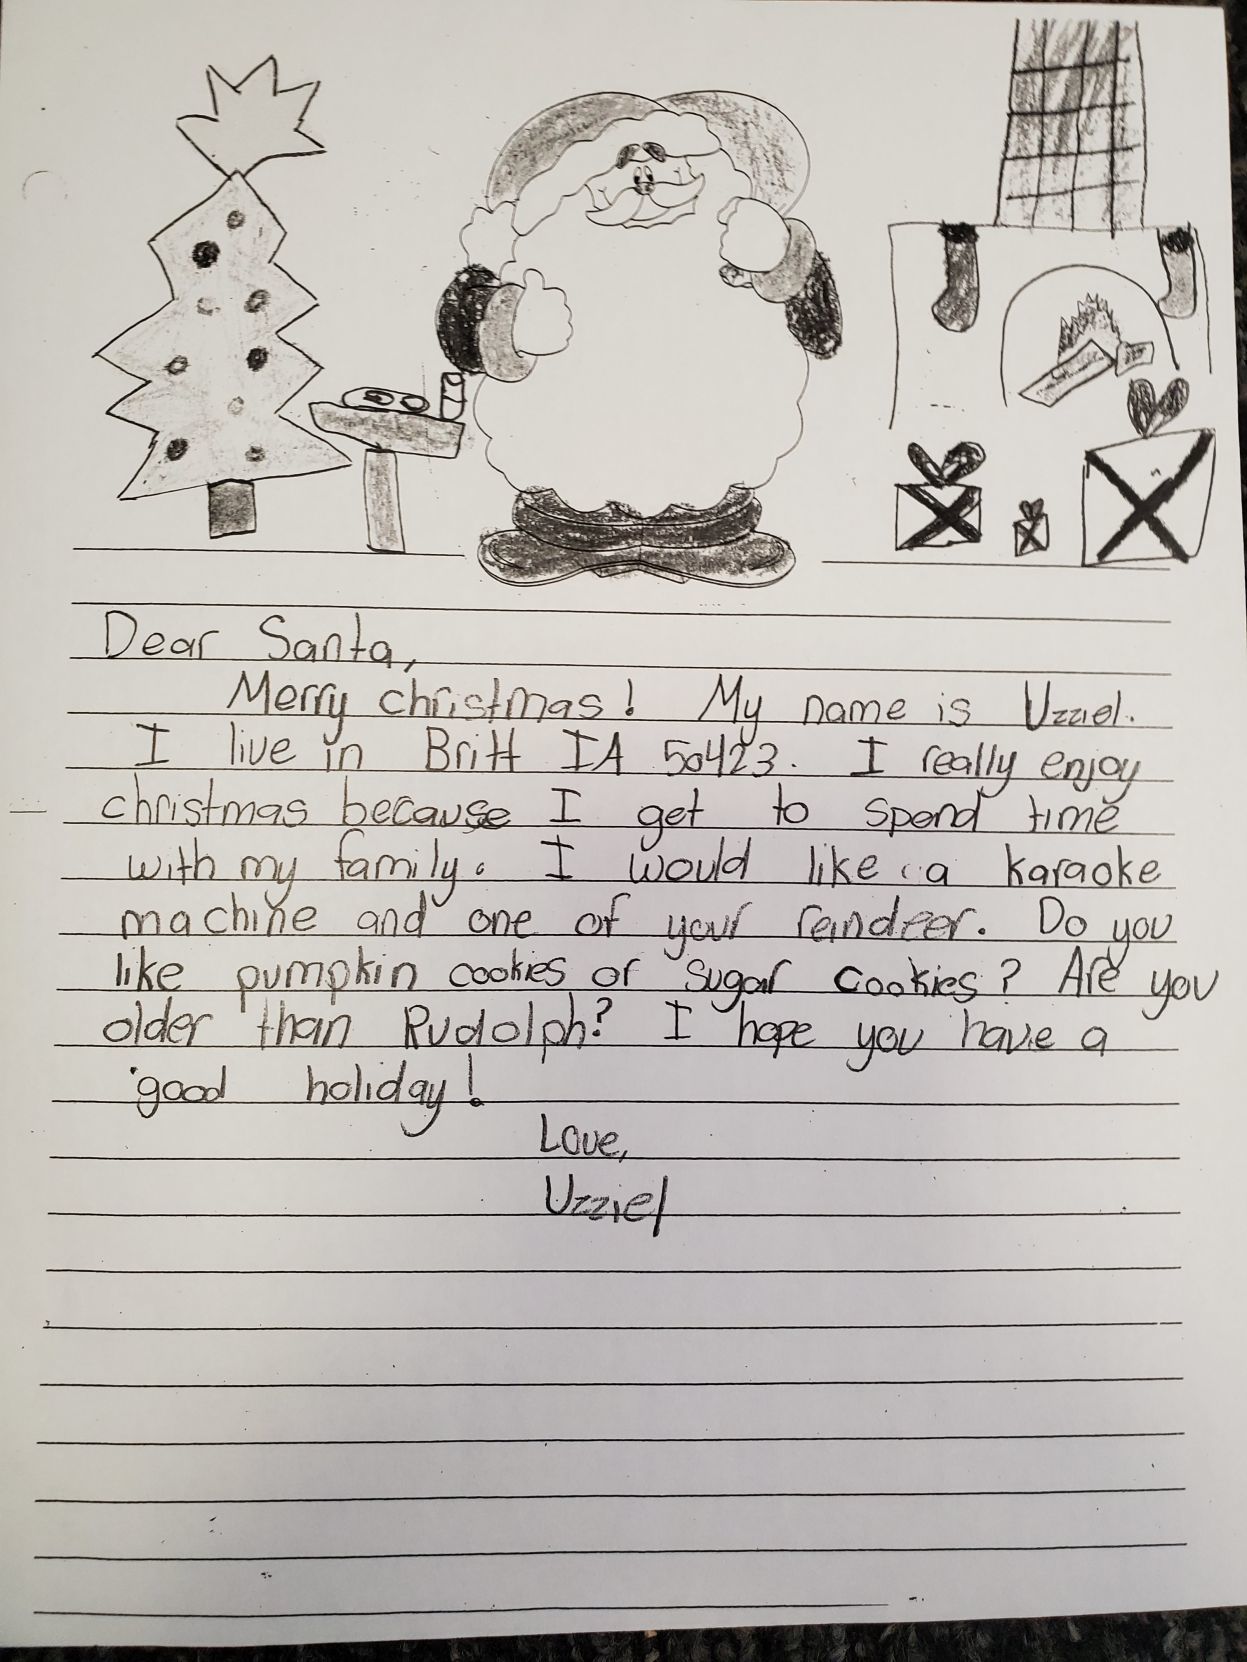 Dear Santa,
Merry christmas! My name is Uzziel.
I live in Britt IA 50423. I really enjoy
christmas because I get to spend time
with my family. I would like a karaoke
machine and one of your reindeer. Do you
like pumpkin cookies or sugar cookies? Are you
older than Rudolph? I hope you have a
good holiday!
Love,
Uzziel